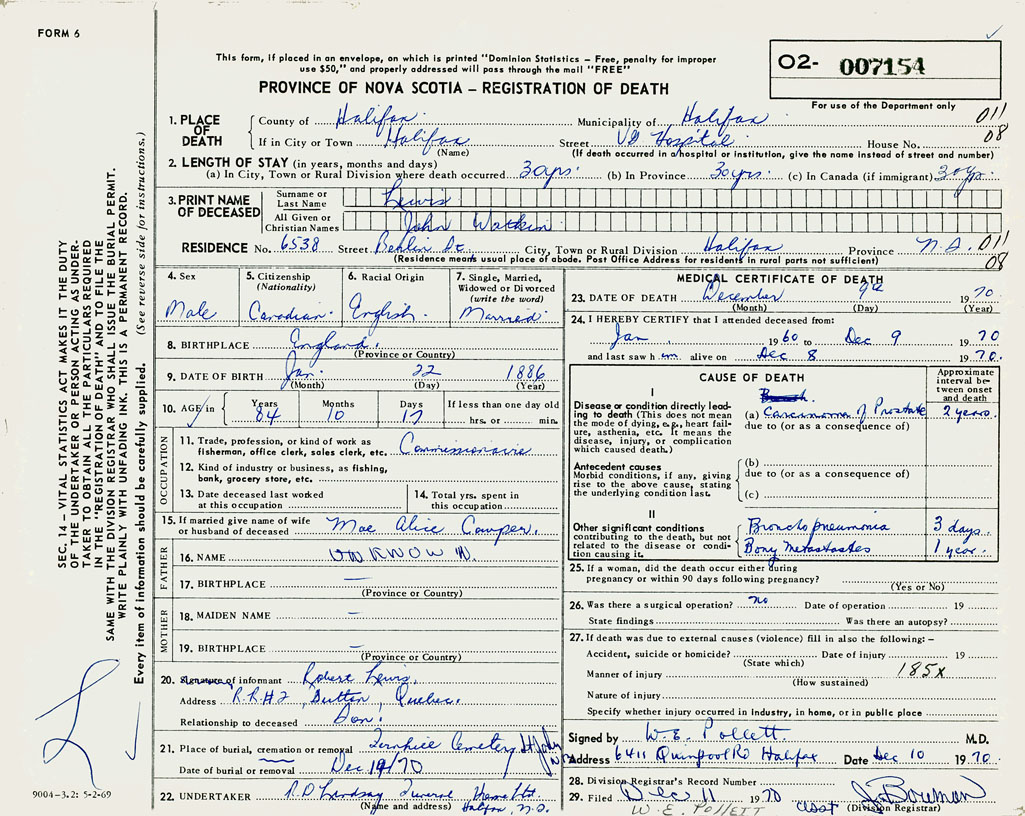 FORM 6
This form, if placed in an envelope, on which is printed "Dominion Statistics – Free, penalty for improper
use $50," and properly addressed will pass through the mail "FREE"
O2- 007154
PROVINCE OF NOVA SCOTIA – REGISTRATION OF DEATH
For use of the Department only
1. PLACE OF DEATH
County of Halifax Municipality of Halifax 011
If in City or Town Halifax Street VG Hospital House No. 08
(Name) (If death occurred in a hospital or institution, give the name instead of street and number)
2. LENGTH OF STAY (in years, months and days)
(a) In City, Town or Rural Division where death occurred 30 yrs. (b) In Province 30 yrs. (c) In Canada (if immigrant) 30 yr.
3. PRINT NAME OF DECEASED
Surname or Last Name Lewis
All Given or Christian Names John Watkin
RESIDENCE No. 6538 Street St. City, Town or Rural Division Halifax Province N.S. 011
(Residence means usual place of abode. Post Office Address for residents in rural parts not sufficient) 08
4. Sex 5. Citizenship 6. Racial Origin 7. Single, Married,
(Nationality) Widowed or Divorced
(write the word)
Male Canadian English. Married
8. BIRTHPLACE England.
(Province or Country)
9. DATE OF BIRTH Jan. 22 1886
(Month) (Day) (Year)
10. AGE in Years Months Days If less than one day old
84 10 17 hrs. or min.
OCCUPATION
11. Trade, profession, or kind of work as
fisherman, office clerk, sales clerk, etc. Commissionaire
12. Kind of industry or business, as fishing,
bank, grocery store, etc.
13. Date deceased last worked 14. Total yrs. spent in
at this occupation this occupation
15. If married give name of wife
or husband of deceased Mae Alice Camper.
FATHER
16. NAME UNKNOWN.
17. BIRTHPLACE —
(Province or Country)
MOTHER
18. MAIDEN NAME —
19. BIRTHPLACE —
(Province or Country)
20. Signature of informant Robert Lewis.
Address R.R#2, Dutton, Quebec.
Relationship to deceased Son.
21. Place of burial, cremation or removal Cemetery St. John
N.B.
Date of burial or removal Dec 19/70
22. UNDERTAKER Funeral Home Ltd.
(Name and address) Halifax, N.S.
MEDICAL CERTIFICATE OF DEATH
23. DATE OF DEATH December 9th 1970
(Month) (Day) (Year)
24. I HEREBY CERTIFY that I attended deceased from:
Jan 1960 to Dec 9 1970
and last saw h im alive on Dec 8 1970.
CAUSE OF DEATH
Approximate interval between onset and death
I
Disease or condition directly leading to death (This does not mean the mode of dying, e.g., heart failure, asthenia, etc. It means the disease, injury, or complication which caused death.)
(a) Carcinoma of Prostate 2 years.
due to (or as a consequence of)
Antecedent causes
Morbid conditions, if any, giving rise to the above cause, stating the underlying condition last.
(b)
due to (or as a consequence of)
(c)
II
Other significant conditions
contributing to the death, but not related to the disease or condition causing it.
Bronchopneumonia 3 days.
Bony Metastastes 1 year.
25. If a woman, did the death occur either during
pregnancy or within 90 days following pregnancy?
(Yes or No)
26. Was there a surgical operation? no Date of operation 19
State findings Was there an autopsy?
27. If death was due to external causes (violence) fill in also the following: –
Accident, suicide or homicide? Date of injury 19
(State which)
Manner of injury 185X
(How sustained)
Nature of injury
Specify whether injury occurred in Industry, in home, or in public place
Signed by W.E. Pollett. M.D.
Address 6411 Quinpool Rd Halifax Date Dec 10 1970.
28. Division Registrar's Record Number
29. Filed Dec 11 1970 Asst J. Bowman
W.E. POLLETT (Division Registrar)
SEC. 14 – VITAL STATISTICS ACT MAKES IT THE DUTY
OF THE UNDERTAKER OR PERSON ACTING AS UNDER-
TAKER TO OBTAIN ALL THE PARTICULARS REQUIRED
IN THE "REGISTRATION OF DEATH" AND TO FILE THE
SAME WITH THE DIVISION REGISTRAR WHO SHALL ISSUE THE BURIAL PERMIT.
WRITE PLAINLY WITH UNFADING INK. THIS IS A PERMANENT RECORD.
Every item of information should be carefully supplied. (See reverse side for instructions.)
9004-3.2: 5-2-69